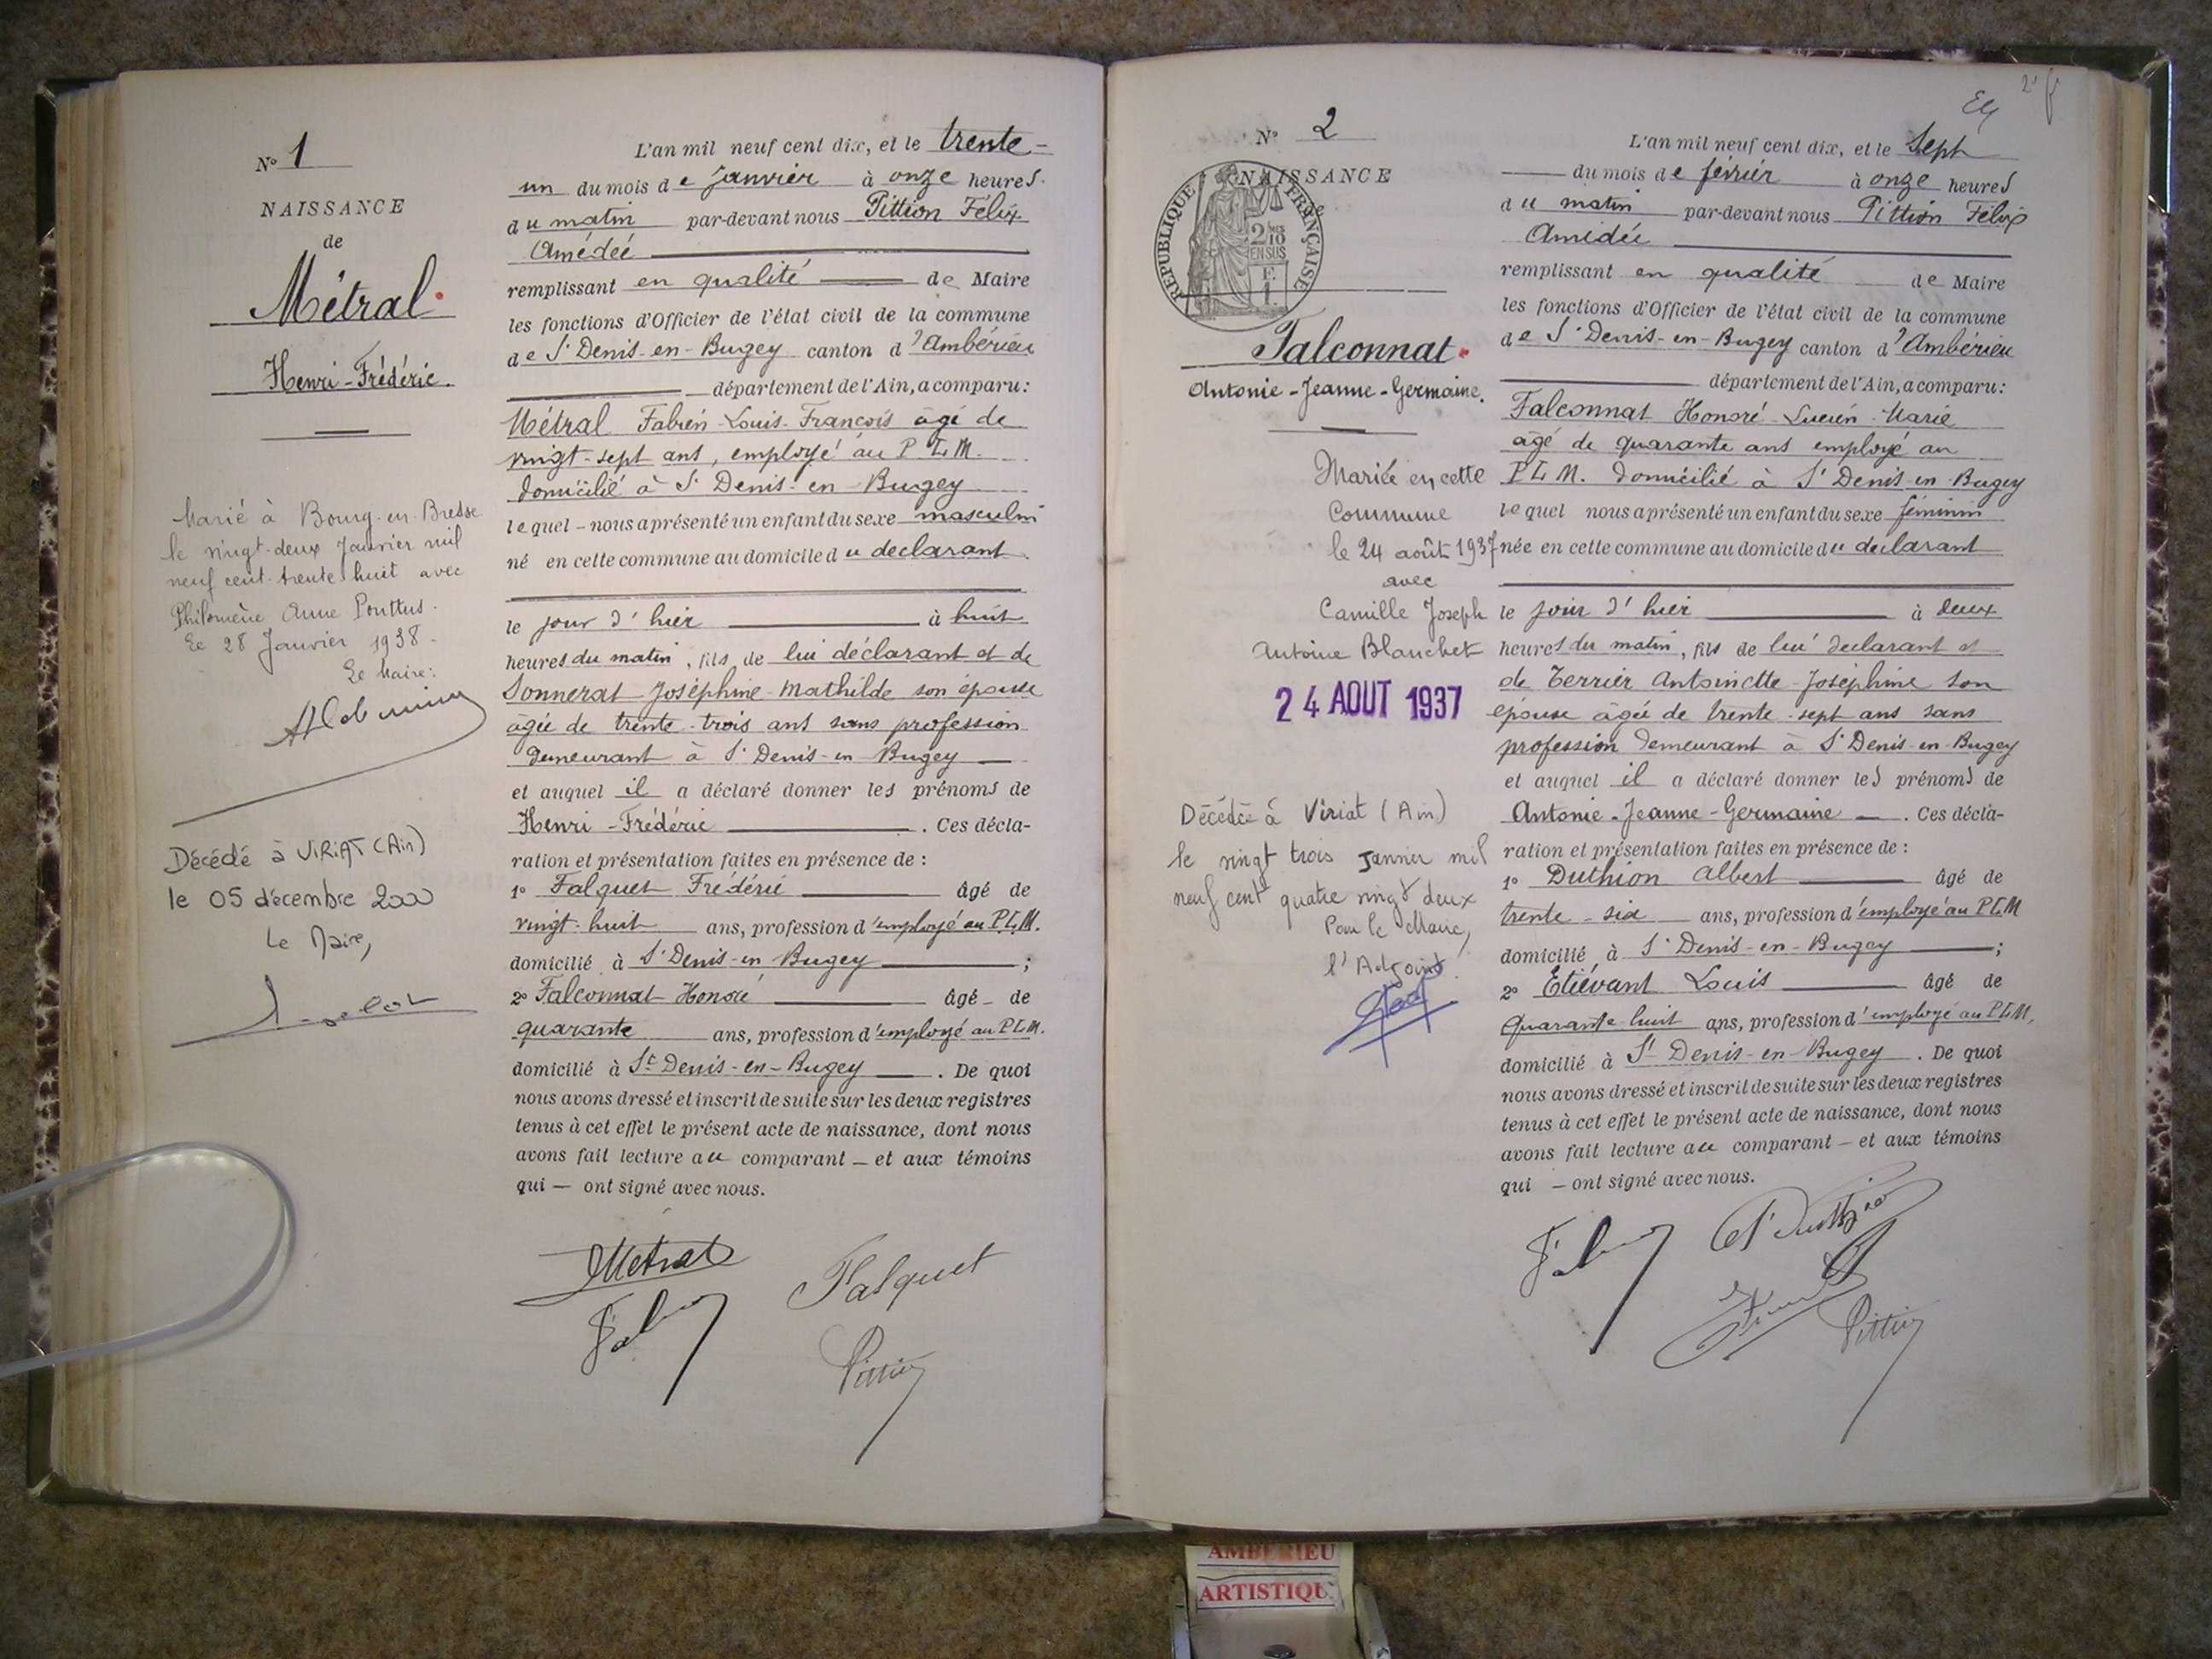 N° 1
NAISSANCE
de
Métral
Henri-Frédéric.
Marié à Bourg-en-Bresse
le vingt-deux Janvier mil
neuf cent trente huit avec
Philomène Anne Pouttus.
Le 28 Janvier 1938.
Le Maire:
Décédé à VIRIAT (Ain)
le 05 décembre 2000
Le Maire,
L'an mil neuf cent dix, et le trente-
un du mois de Janvier à onze heures
du matin par-devant nous Pittion Félix
Amédée
remplissant en qualité de Maire
les fonctions d'Officier de l'état civil de la commune
de St Denis-en-Bugey canton d'Ambérieu
département de l'Ain, a comparu:
Métral Fabien-Louis-François âgé de
vingt-sept ans, employé au P.L.M.
domicilié à St Denis-en-Bugey
lequel - nous a présenté un enfant du sexe masculin
né en cette commune au domicile du declarant
le jour d'hier à huit
heures du matin, fils de lui déclarant et de
Sonnerat Joséphine-Mathilde son épouse
âgée de trente-trois ans sans profession
demeurant à St Denis-en-Bugey
et auquel il a déclaré donner les prénoms de
Henri-Frédéric. Ces décla-
ration et présentation faites en présence de :
1° Falquet Frédéric âgé de
vingt-huit ans, profession d'employé au P.L.M.
domicilié à St Denis-en-Bugey ;
2° Falconnat Honoré âgé de
quarante ans, profession d'employé au P.L.M.
domicilié à St Denis-en-Bugey. De quoi
nous avons dressé et inscrit de suite sur les deux registres
tenus à cet effet le présent acte de naissance, dont nous
avons fait lecture au comparant - et aux témoins
qui - ont signé avec nous.
Metral
Falquet
Pittion
N° 2
NAISSANCE
REPUBLIQUE FRANÇAISE
2/10
EN SUS
Falconnat
Antonie-Jeanne-Germaine.
Mariée en cette
Commune
le 24 août 1937
avec
Camille Joseph
Antoine Blanchet
24 AOUT 1937
Décédée à Viriat (Ain)
le vingt trois Janvier mil
neuf cent quatre vingt deux
Pour le Maire,
l'Adjoint
L'an mil neuf cent dix, et le Sept
du mois de février à onze heures
du matin par-devant nous Pittion Félix
Amédée
remplissant en qualité de Maire
les fonctions d'Officier de l'état civil de la commune
de St Denis-en-Bugey canton d'Ambérieu
département de l'Ain, a comparu:
Falconnat Honoré-Lucien-Marie
âgé de quarante ans employé au
P.L.M. domicilié à St Denis-en-Bugey
lequel nous a présenté un enfant du sexe féminin
née en cette commune au domicile du declarant
le jour d'hier à deux
heures du matin, fils de lui declarant et
de Terrier Antoinette-Joséphine son
épouse âgée de trente-sept ans sans
profession demeurant à St Denis-en-Bugey
et auquel il a déclaré donner les prénoms de
Antonie-Jeanne-Germaine. Ces décla-
ration et présentation faites en présence de :
1° Duthion Albert âgé de
trente-six ans, profession d'employé au P.L.M
domicilié à St Denis-en-Bugey ;
2° Etiévant Louis âgé de
Quarante-huit ans, profession d'employé au P.L.M,
domicilié à St Denis-en-Bugey. De quoi
nous avons dressé et inscrit de suite sur les deux registres
tenus à cet effet le présent acte de naissance, dont nous
avons fait lecture au comparant - et aux témoins
qui - ont signé avec nous.
Pittion
AMBERIEU
ARTISTIQUE